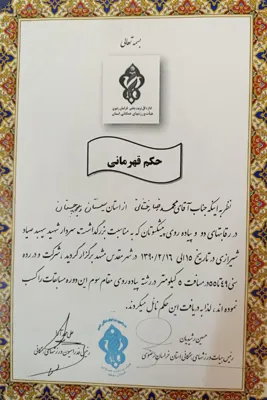 بسمه تعالی
اداره کل تربیت بدنی خراسان رضوی
هیأت ورزشهای همگانی استان
حکم قهرمانی
نظر به اینکه جناب آقای محمد رضا از استان سیستان و بلوچستان
در رقابتهای دو و پیاده روی پیشکسوتان که به مناسبت بزرگداشت سردار شهید سپهبد صیاد
شیرازی در تاریخ ۱۵ الی ۱۳۹۰/۲/۱۶ در شهر مقدس مشهد برگزار گردید، شرکت و در رده
سنی ۴۹تا۵۵ در مسافت ۵ کیلومتر در رشته پیاده روی مقام سوم این دوره مسابقات را کسب
نموده اند، لذا به دریافت این حکم نائل میگردند.
حسین رشیدیان
رئیس هیات ورزشهای همگانی استان خراسان رضوی
رئیس فدراسیون ورزشهای همگانی